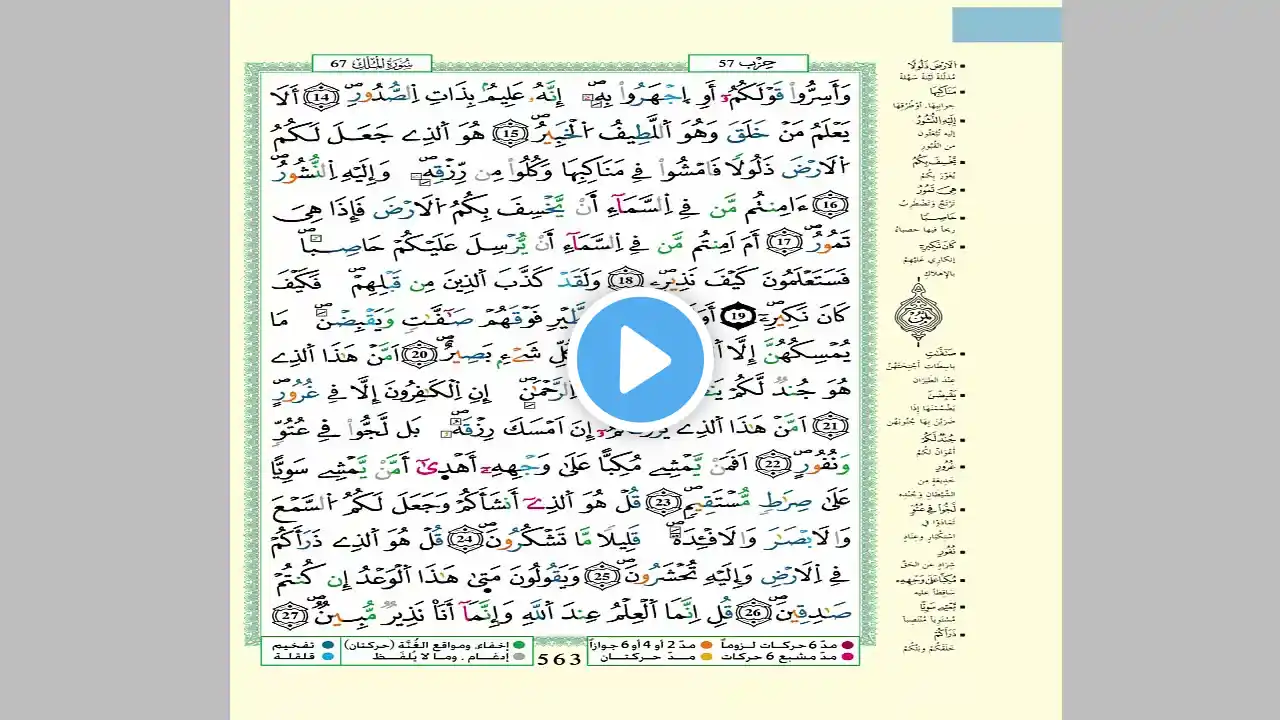 سُورَةُ الْمُلْكِ 67
حِزْب 57
وَأَسِرُّوا۟ قَوْلَكُمُۥٓ أَوِ اِ۪جْهَرُوا۟ بِهِۦٓ إِنَّهُۥ عَلِيمُۢ بِذَاتِ اِ۬لصُّدُورِ 14 أَلَا
يَعْلَمُ مَنْ خَلَقَ وَهُوَ اَ۬للَّطِيفُ اُ۬لْخَبِيرُ 15 هُوَ اَ۬لذِے جَعَلَ لَكُمُ
اُ۬لَارْضَ ذَلُولًا فَامْشُوا۟ فِے مَنَاكِبِهَا وَكُلُوا۟ مِن رِّزْقِهِۦ وَإِلَيْهِ اِ۬لنُّشُورُ
16 ءَا۬مِنتُم مَّن فِے اِ۬لسَّمَآءِ أَنْ يَّخْسِفَ بِكُمُ اُ۬لَارْضَ فَإِذَا هِىَ
تَمُورُ 17 أَمَ اَمِنتُم مَّن فِے اِ۬لسَّمَآءِ أَنْ يُّرْسِلَ عَلَيْكُمْ حَاصِبًا
فَسَتَعْلَمُونَ كَيْفَ نَذِيرِۦ 18 وَلَقَدْ كَذَّبَ اَ۬لذِينَ مِن قَبْلِهِمْ فَكَيْفَ
كَانَ نَكِيرِۦٓ 19 فَوْقَهُمْ صَٰٓفَّٰتٍ وَيَقْبِضْنَ مَا
يُمْسِكُهُنَّ إِلَّا شَےْءِۭ بَصِيرٌ 20 اَمَّنْ هَٰذَا اَ۬لذِے
هُوَ جُندٌ لَّكُمْ اِ۬لرَّحْمَٰنِ إِنِ اِ۬لْكَٰفِرُونَ إِلَّا فِے غُرُورٍ
21 اَمَّنْ هَٰذَا اَ۬لذِے إِنَ اَمْسَكَ رِزْقَهُۥ بَل لَّجُّوا۟ فِے عُتُوٍّ
وَنُفُورٍ 22 اَفَمَنْ يَّمْشِے مُكِبًّا عَلَىٰ وَجْهِهِۦٓ أَهْد۪ىٰٓ أَمَّنْ يَّمْشِے سَوِيًّا
عَلَىٰ صِرَٰطٍ مُّسْتَقِيمٍ 23 قُلْ هُوَ اَ۬لذِےٓ أَنشَأَكُمْ وَجَعَلَ لَكُمُ اُ۬لسَّمْعَ
وَالَابْصَٰرَ وَالَافْـِٕدَةَ قَلِيلًا مَّا تَشْكُرُونَ 24 قُلْ هُوَ اَ۬لذِے ذَرَأَكُمْ
فِے اِ۬لَارْضِ وَإِلَيْهِ تُحْشَرُونَ 25 وَيَقُولُونَ مَت۪ىٰ هَٰذَا اَ۬لْوَعْدُ إِن كُنتُمْ
صَٰدِقِينَ 26 قُلِ اِنَّمَا اَ۬لْعِلْمُ عِندَ اَ۬للَّهِ وَإِنَّمَآ أَنَا۠ نَذِيرٌ مُّبِينٌ 27
مدّ 6 حركات لزوماً مدّ 2 أو 4 أو 6 جوازاً
مدّ مشبع 6 حركات مدّ حركتان
563
إخفاء، ومواقع الغُنَّة (حركتان) تفخيم
إدغام، وما لا يُلفَظ قلقلة
الَارْضَ ذَلُولًا
مُذَلَّلَةً لَيِّنَةً سَهْلَةً
مَنَاكِبِهَا
جوانبها، أو طُرُقها
إِلَيْهِ النُّشُورُ
إليه تُبْعَثُون
من القُبُور
يَخْسِفَ بِكُمُ
يُغَوِّرَ بِكُمْ
هِيَ تَمُورُ
تَرْتَجُّ وَتَضْطَرِبُ
حَاصِبًا
ريحا فيها حصباء
كَانَ نَكِيرِ
إنكاري عليهمْ
بالإهلاك
صَٰٓفَّٰتٍ
باسِطات أجنِحَتَهُنَّ
عند الطيران
يَقْبِضْنَ
يَضْمُمْنَها إذا
ضَرَبْنَ بها جُنُوبَهُن
جُندٌ لَّكُمْ
أعْوَانٌ لكُمْ
غُرُورٍ
خديعةٍ من
الشّيْطانِ وجُنده
لَجُّوا فِي عُتُوٍّ
تَمادَوْا في
استكبار وعناد
نُفُورٍ
شِرادٍ عن الحَقِّ
مُكِبًّا عَلَىٰ وَجْهِهِ
ساقطا عليه
يَمْشِي سَوِيًّا
مُسْتَوِياً مُنتَصِباً
ذَرَأَكُمْ
خَلَقَكُمْ وبَثَّكُمْ